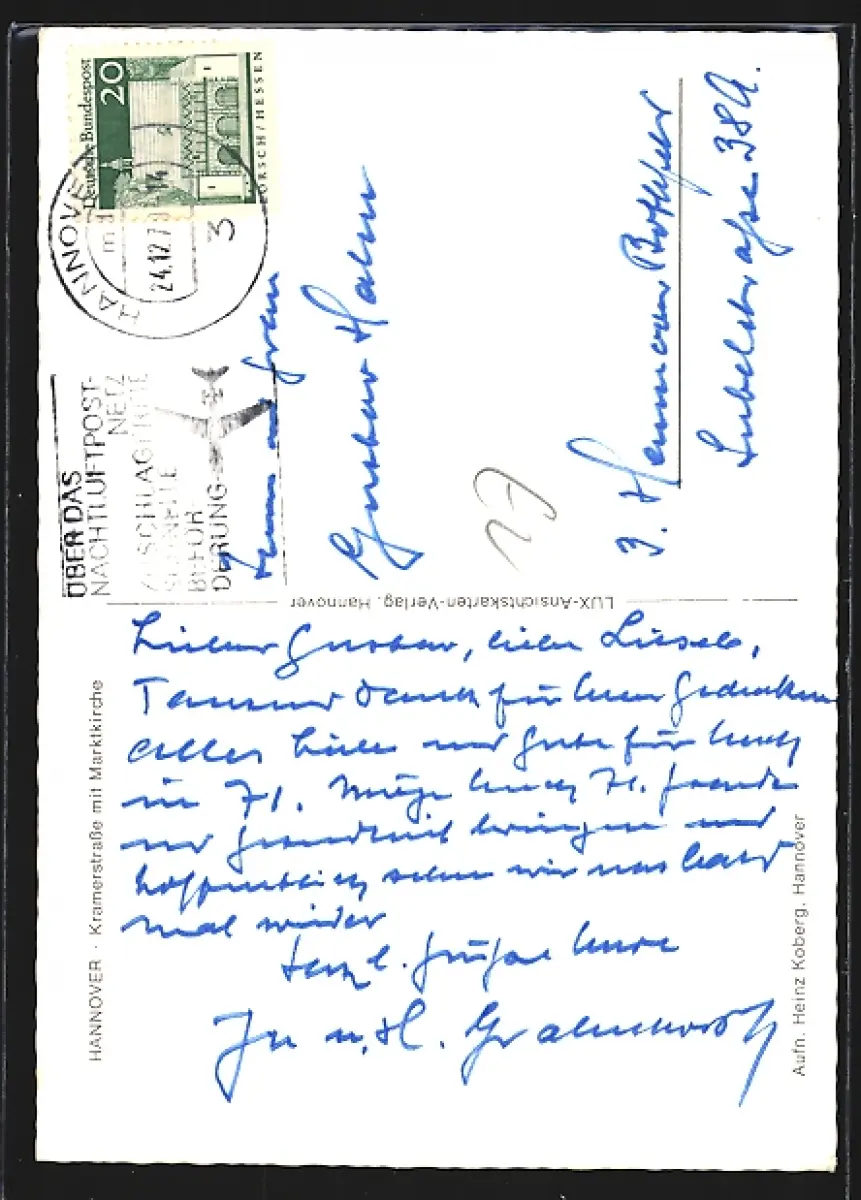 Deutsche Bundespost
20
LORSCH/HESSEN
HANNOVER
24.12.70
3
ÜBER DAS
NACHTLUFTPOST-
NETZ
ZUSCHLAGFREIE
SCHNELLE
BEFÖR-
DERUNG
Herrn und Frau
Gustav Hahn
3. Hannover Bothfeld
38A.
17
LUX-Ansichtskarten-Verlag, Hannover
HANNOVER · Kramerstraße mit Marktkirche
Aufn. Heinz Koberg, Hannover
Lieber Gustav, liebe Liesel,
Tausend Dank für Euer Gedenken
Alles Liebe und Gute für Euch
in 71. Möge Euch 71. Freude
und Gesundheit bringen und
hoffentlich sehen wir uns bald
mal wieder
Herzl. Grüße Eure
u. H.